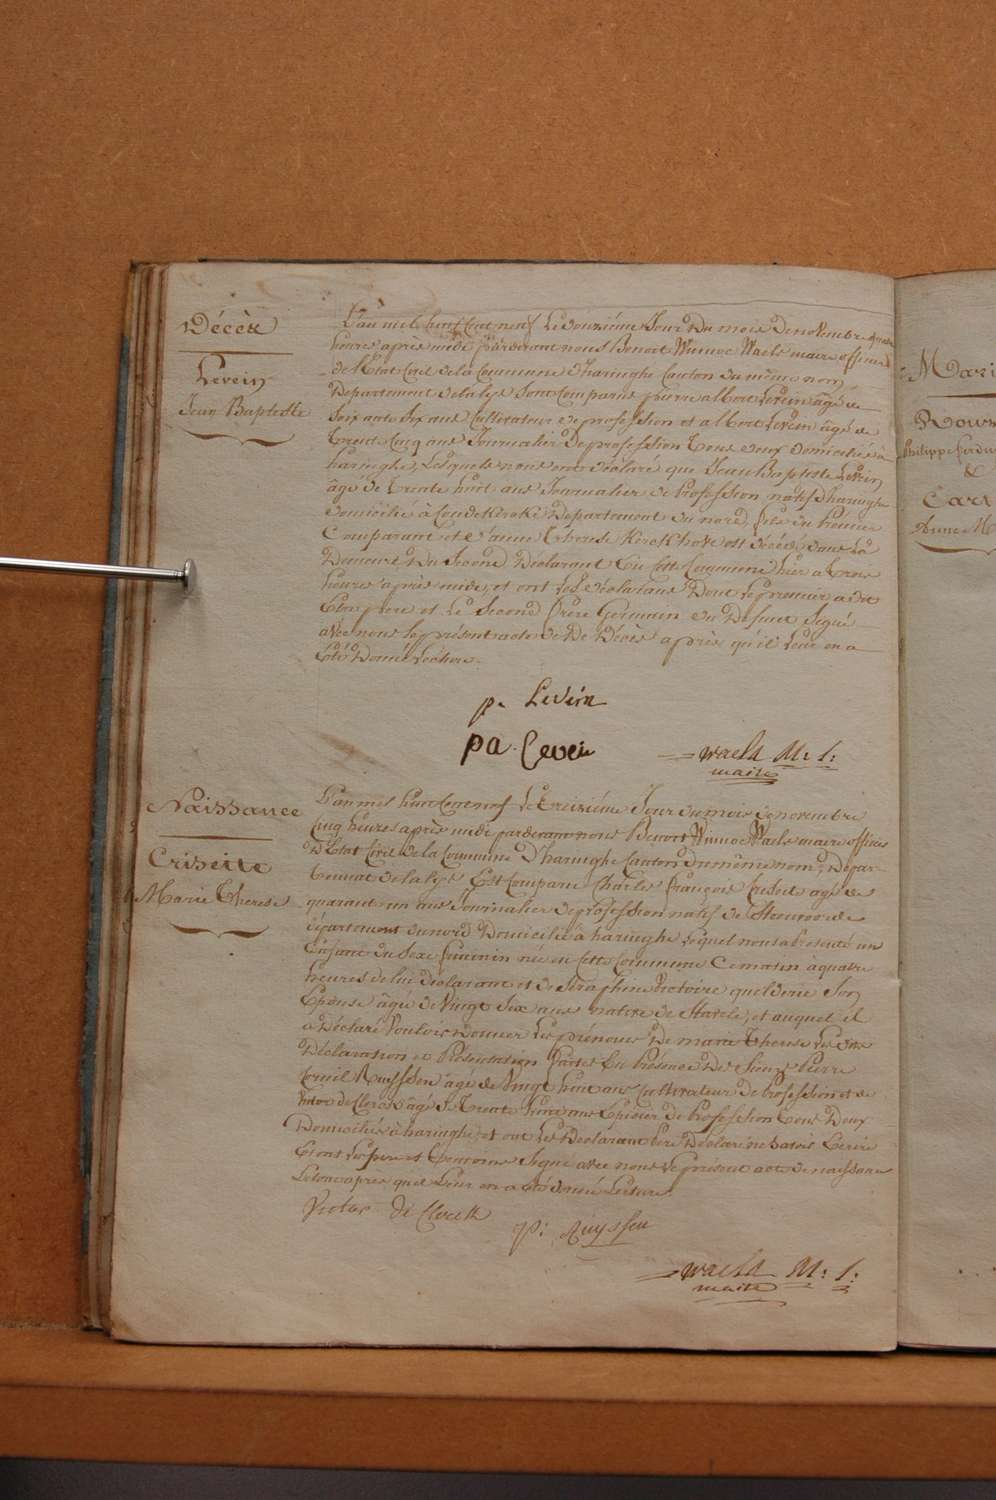 Décès
Levein
Jean Baptiste
L'an mil huit Cent neuf Le douzième Jour du mois de novembre quatre
heures après midi pardevant nous Benoit Winnoc Waels maire officier
de l'Etat Civil de la Commune d'haringhe Canton du même nom
Departement de la lys sont Comparus pierre albert Levein âgé de
soixante six ans Cultivateur de profession et albert Levein âgé de
trente Cinq ans Journalier de profession tous deux domiciliés à
haringhe, Lesquels nous ont déclaré que Jean Baptiste Levein
âgé de trente huit ans Journalier de Profession natif d'haringhe
domicilié à Coudekerake Departement du nord, fils du premier
Comparant et d'anne Therese Kerckhove est décédé dans la
Demeure du second Déclarant En cette Commune hier a trois
heures après midi, et ont Les déclarans Dont le premier a dit
Etre père et Le second frère Germain du Defunt Signé
avec nous le présent acte de Décès après qu'il Leur en a
Eté Donné Lecture.
p. Levein
pa. Levein
waels M: S:
maire
Naissance
Criseite
Marie Therese
L'an mil huit Cent neuf Le treizième Jour du mois de novembre
Cinq heures après midi pardevant nous Benoit Winnoc Waels maire officier
d'Etat Civil de la Commune d'haringhe Canton du même nom, Depar-
tement de la lys Est Comparu Charles François age de
quarant un ans Journalier de profession natif de Steenvoorde
département du nord Domicilié à haringhe Lequel nous a présenté un
Enfant du Sexe Féminin née en cette Commune Ce matin à quatre
heures de lui déclarant et de Seraphine Victoire quelderie Son
Epouse âgée de Vingt Six ans native de Stavele, et auquel il
à Déclaré Vouloir Donner Les prénoms De marie Therese Les dites
Déclaration et Présentation faites En Présence De Sieurs Pierre
Corneil Ruyssen âgé de Vingt huit ans Cultivateur de Profession et de
Victor de Clerck âgé de Trente ans Epicier de Profession tous Deux
Domiciliés à haringhe, et ont Le Déclarant Père Déclaré ne Savoir Ecrire
Et ont Les témoins Signé avec nous le présent acte de naissance
Le tout après que Leur en a été donné Lecture.
Victor de Clerck
P: Ruyssen
waels M: S:
maire
Mari
Rouss
Philippe Ferdin
&
Cart
Anne M